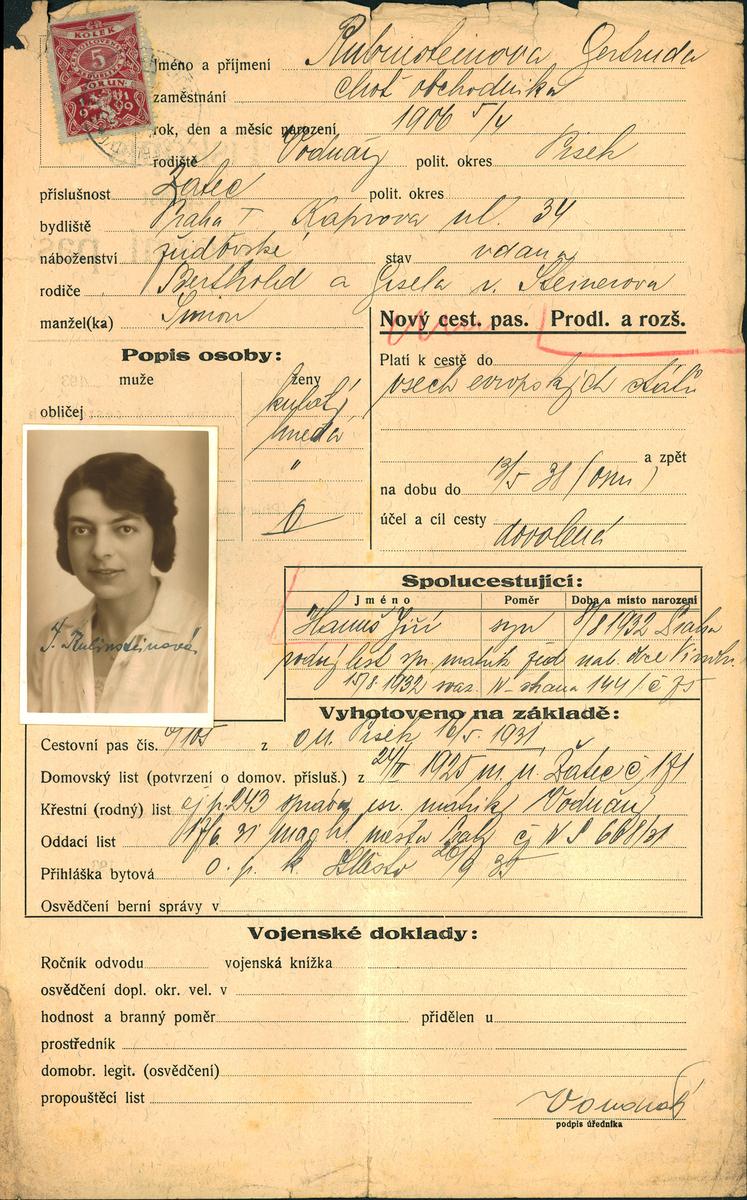 KOLEK
5
KORUN
Jméno a příjmení Rubinsteinova Gertruda
zaměstnání choť obchodníka
rok, den a měsíc narození 1906 5/4
rodiště Vodňany polit. okres Písek
příslušnost Žatec polit. okres
bydliště Praha I Kaprova ul. 34
náboženství židovské stav vdaná
rodiče Berthold a Gisela r. Steinerova
manžel(ka) Simon
Nový cest. pas. Prodl. a rozš.
Popis osoby:
muže ženy
obličej kulatý
hnědá
"
0
Platí k cestě do
všech evropských států
a zpět
na dobu do 13/5 38
účel a cíl cesty dovolená
J. Rubinsteinová
Spolucestující:
Jméno Poměr Doba a místo narození
Hanuš Jiří syn 8/8 1932 Praha
rodný list spr. matrik žid. nab. obce
15/8 1932 svaz. IV strana 144 č 75
Vyhotoveno na základě:
Cestovní pas čís. z o. ú. Písek 16/5 1931
Domovský list (potvrzení o domov. přísluš.) z 1925 m. ú. Žatec č 171
Křestní (rodný) list čj p. 243 správa isr. matrik Vodňany
Oddací list 17/6 31 magist města Prahy čj 668/31
Přihláška bytová o. p. k. 35
Osvědčení berní správy v
Vojenské doklady:
Ročník odvodu vojenská knížka
osvědčení dopl. okr. vel. v
hodnost a branný poměr přidělen u
prostředník
domobr. legit. (osvědčení)
propouštěcí list
podpis úředníka